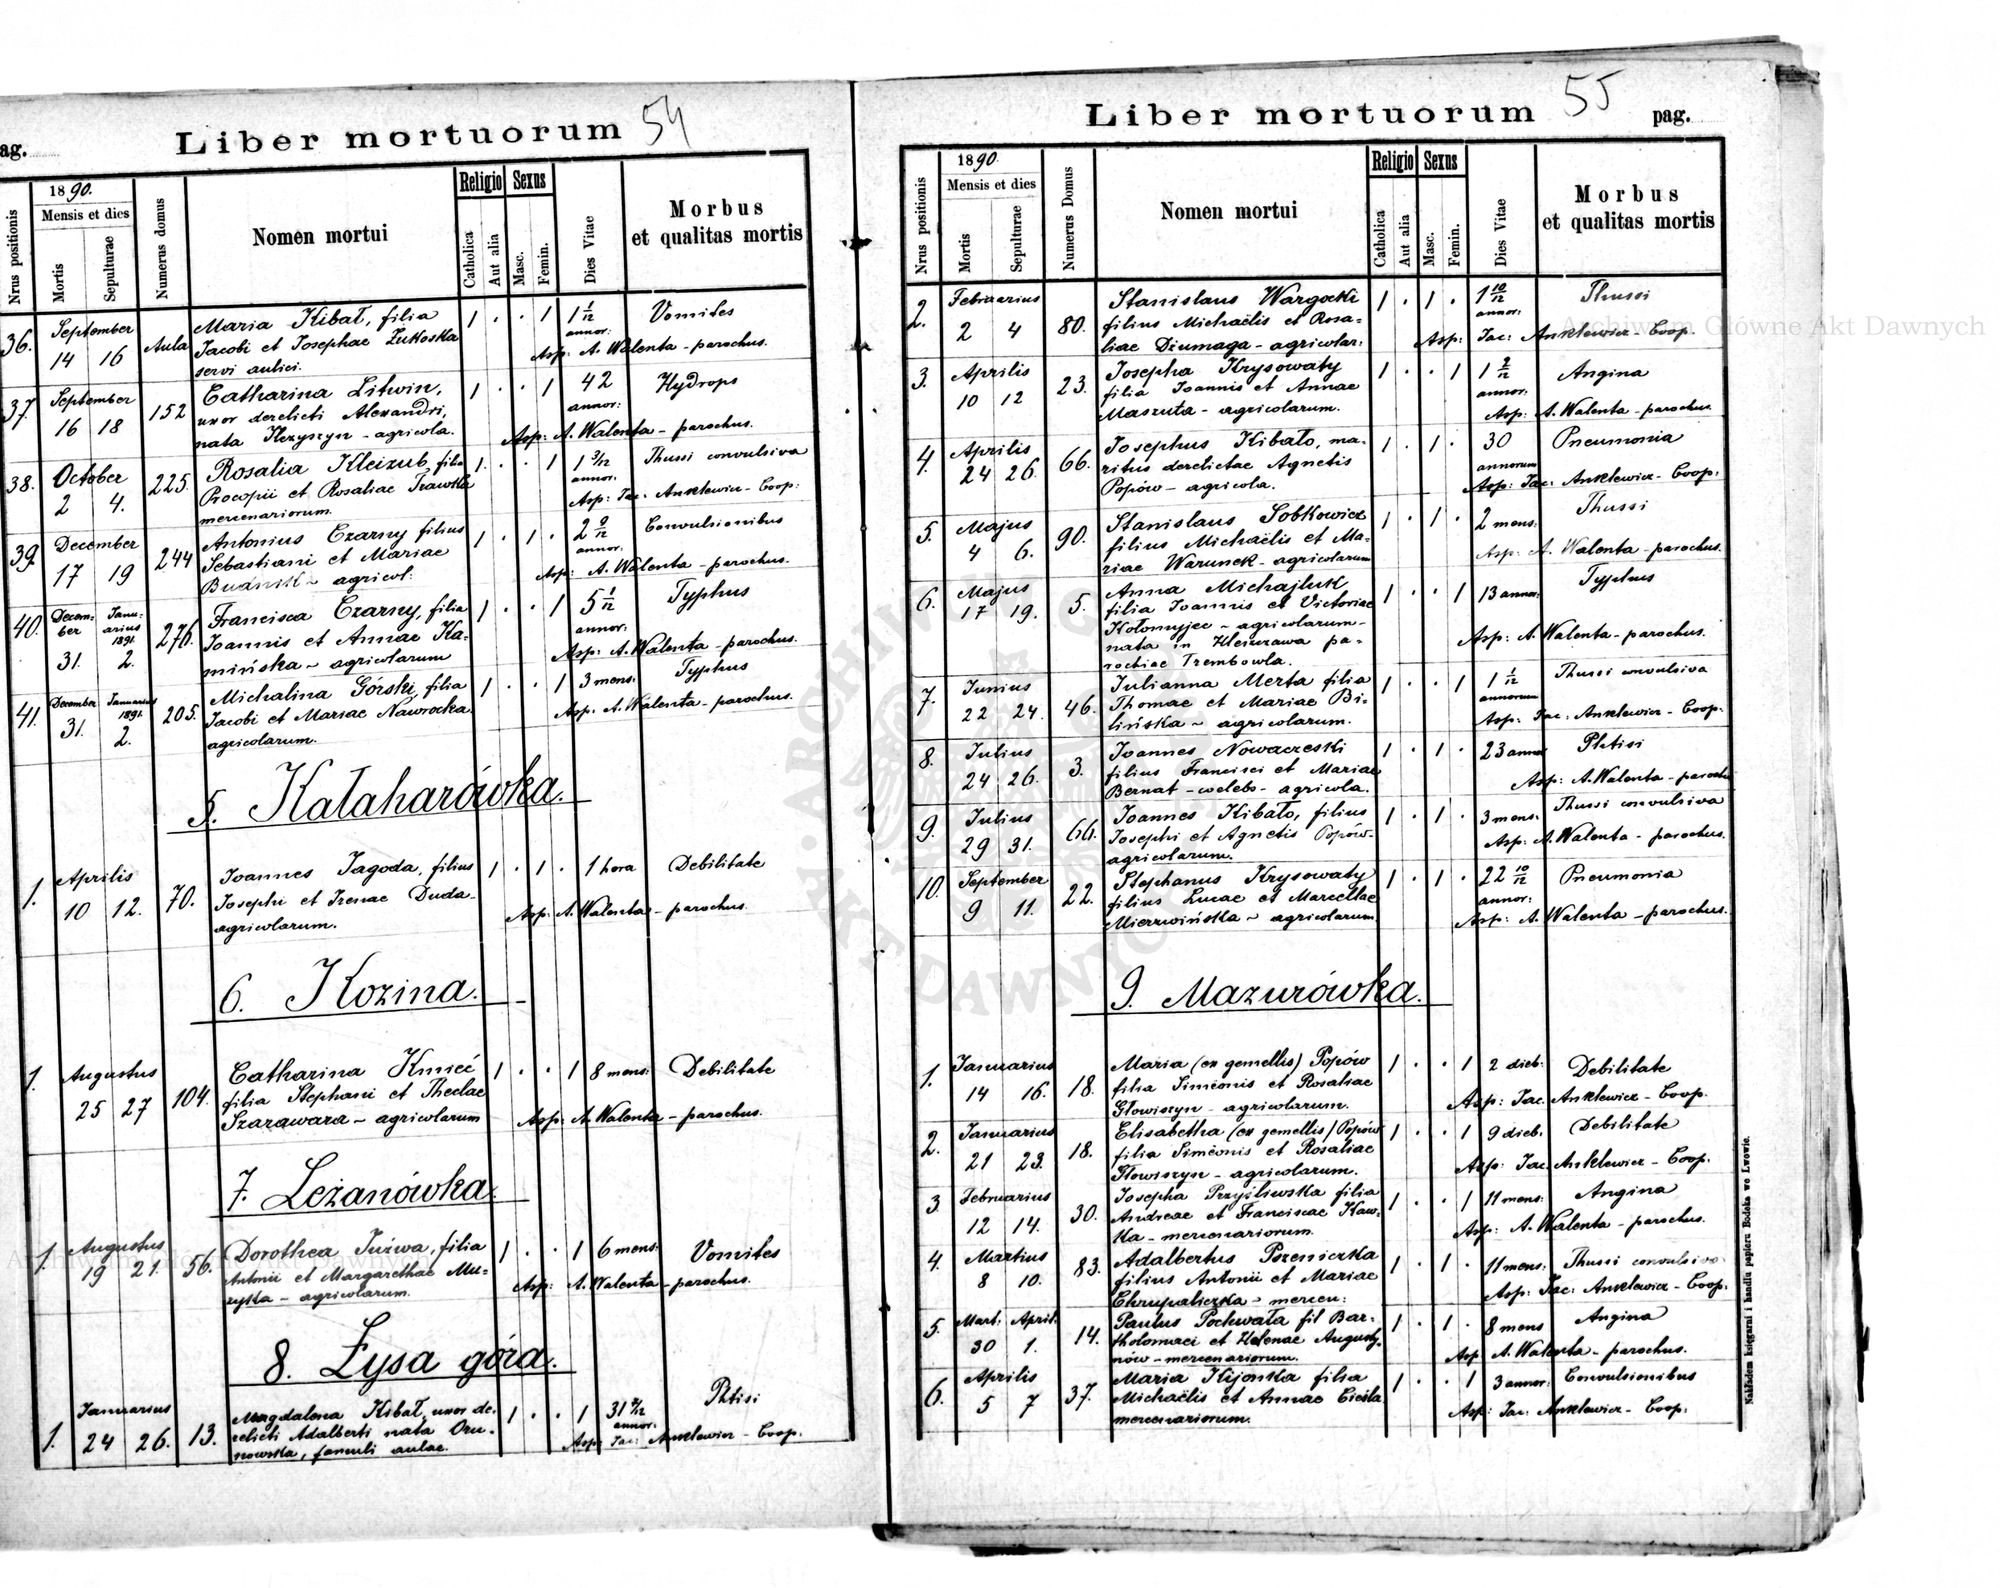 ag.
Liber mortuorum 54
Nrus positionis
1890.
Mensis et dies
Mortis
Sepulturae
Numerus domus
Nomen mortui
Religio
Catholica
Aut alia
Sexus
Masc.
Femin.
Dies Vitae
Morbus
et qualitas mortis
36. September 14 16 Aula Maria Kibał, filia 1 . . 1 1 1/12 annor: Vomites
Jacobi et Josephae Żukoska
servi aulici. Asp: A. Walenta - parochus.
37. September 16 18 152 Catharina Litwin, 1 . . 1 42 annor: Hydrops
uxor derelicti Alexandri,
nata - agricola. Asp: A. Walenta - parochus.
38. October 2 4. 225. Rosalia Kleizub filia 1. . . 1 1 3/12 annor. Thussi convulsiva
Procopii et Rosaliae Trawka
mercenariorum. Asp: Jac: Anklewicz - Coop:
39. December 17 19 244 Antonius Czarny filius 1 . 1 . 2 9/12 annor: Convulsionibus
Sebastiani et Mariae
Budnik - agricol: Asp: A. Walenta - parochus.
40. Decem-ber 31. Janu-arius 1891. 2. 276. Francisca Czarny, filia 1 . . 1 5 1/12 annor: Typhus
Joannis et Annae Ka-
mińska - agricolarum Asp: A. Walenta - parochus.
41. December 31. Januarius 1891. 2. 205. Michalina Górski, filia 1 . . 1 3 mens: Typhus
Jacobi et Mariae Nawrocka.
agricolarum. Asp: A. Walenta - parochus.
5. Kałaharówka.
1. Aprilis 10 12. 70. Joannes Jagoda, filius 1 . 1 . 1 hora Debilitate
Josephi et Irenae Duda-
agricolarum. Asp: A. Walenta - parochus.
6. Kozina.
1. Augustus 25 27 104. Catharina Kmieć 1 . . 1 8 mens: Debilitate
filia Stephani et Theclae
Szarawara - agricolarum Asp: A. Walenta - parochus.
7. Leżanówka.
1. Augustus 19 21. 56. Dorothea Juźwa, filia 1 . . 1 6 mens: Vomites
Antonii et Margarethae Mu-
zyka - agricolarum. Asp: A. Walenta - parochus.
8. Łysa góra.
1. Januarius 24 26. 13. Magdalena Kibał, uxor de- 1 . . 1 31 annor: Phtisi
relicti Adalberti nata Oru-
nowska, famuli aulae. Asp: Jac: Anklewicz - Coop.
Liber mortuorum 55
pag.
Nrus positionis
1890.
Mensis et dies
Mortis
Sepulturae
Numerus Domus
Nomen mortui
Religio
Catholica
Aut alia
Sexus
Masc.
Femin.
Dies Vitae
Morbus
et qualitas mortis
2. Februarius 2 4 80. Stanislaus Wargocki 1 . 1 . 1 10/12 annor: Thussi
filius Michaëlis et Rosa-
liae Dżumaga - agricolar: Asp: Jac: Anklewicz - Coop.
3. Aprilis 10 12 23. Josepha Krysowaty 1 . . 1 1 2/12 annor: Angina
filia Joannis et Annae
Maszuta - agricolarum. Asp: A. Walenta - parochus.
4. Aprilis 24 26. 66. Josephus Kibało, ma- 1 . 1 . 30 annorum Pneumonia
ritus derelictae Agnetis
Popów - agricola. Asp: Jac: Anklewicz - Coop:
5. Majus 4 6. 90. Stanislaus Sobkowicz 1 . 1 . 2 mens: Thussi
filius Michaëlis et Ma-
riae Warunek - agricolarum Asp: A. Walenta - parochus.
6. Majus 17 19. 5. Anna Michajluk 1 . . 1 13 annor: Typhus
filia Joannis et Victoriae
Kołomyjec - agricolarum - Asp: A. Walenta - parochus.
nata in pa-
rochiae Trembowla.
7. Junius 22 24. 46. Julianna Merta filia 1 . . 1 1 1/12 annorum Thussi convulsiva
Thomae et Mariae Bi-
lińska - agricolarum. Asp: Jac: Anklewicz - Coop:
8. Julius 24 26. 3. Joannes Nowaczeski 1 . 1 . 23 annor Phtisi
filius Francisci et Mariae
Bernat - coelebs - agricola. Asp: A. Walenta - parochu
9. Julius 29 31. 66. Joannes Kibało, filius 1 . 1 . 3 mens: Thussi convulsiva
Josephi et Agnetis Popów-
agricolarum. Asp: A. Walenta - parochus.
10. September 9 11. 22. Stephanus Krysowaty 1 . 1 . 22 10/12 annor: Pneumonia
filius Lucae et Marcellae
Mierzwińska - agricolarum Asp: A. Walenta - parochus.
9. Mazurówka.
1. Januarius 14 16. 18. Maria (ex gemellis) Popów 1 . . 1 2 dieb: Debilitate
filia Simeonis et Rosaliae
Głowiszyn - agricolarum. Asp: Jac. Anklewicz - Coop.
2. Januarius 21 23. 18. Elisabetha (ex gemellis) Popów 1 . . 1 9 dieb. Debilitate
filia Simeonis et Rosaliae
Głowiszyn - agricolarum. Asp: Jac. Anklewicz - Coop.
3. Februarius 12 14. 30. Josepha Przyśliwska filia 1 . . 1 11 mens: Angina
Andreae et Franciscae Kaw-
ka - mercenariorum. Asp: A. Walenta - parochus.
4. Martius 8 10. 83. Adalbertus Pszeniczka 1 . 1 . 11 mens: Thussi convulsiva
filius Antonii et Mariae
Chrupaliczka - mercen: Asp: Jac: Anklewicz - Coop:
5. Mart: 30 April. 1. 14. Paulus Pochwała fil Bar- 1 . 1 . 8 mens Angina
tholomaei et Helenae Augusty-
nów - mercenariorum. Asp A. Walenta - parochus.
6. Aprilis 5 7 37. Maria Kijonka filia 1 . . 1 3 annor: Convulsionibus
Michaëlis et Annae Cieśla
mercenariorum. Asp: Jac: Anklewicz - Coop:
Nakładem księgarni i handlu papieru Bodeka we Lwowie.
Archiwum Główne Akt Dawnych
Archiwum Główne Akt Dawnych
ARCHIWUM GŁÓWNE AKT DAWNYCH